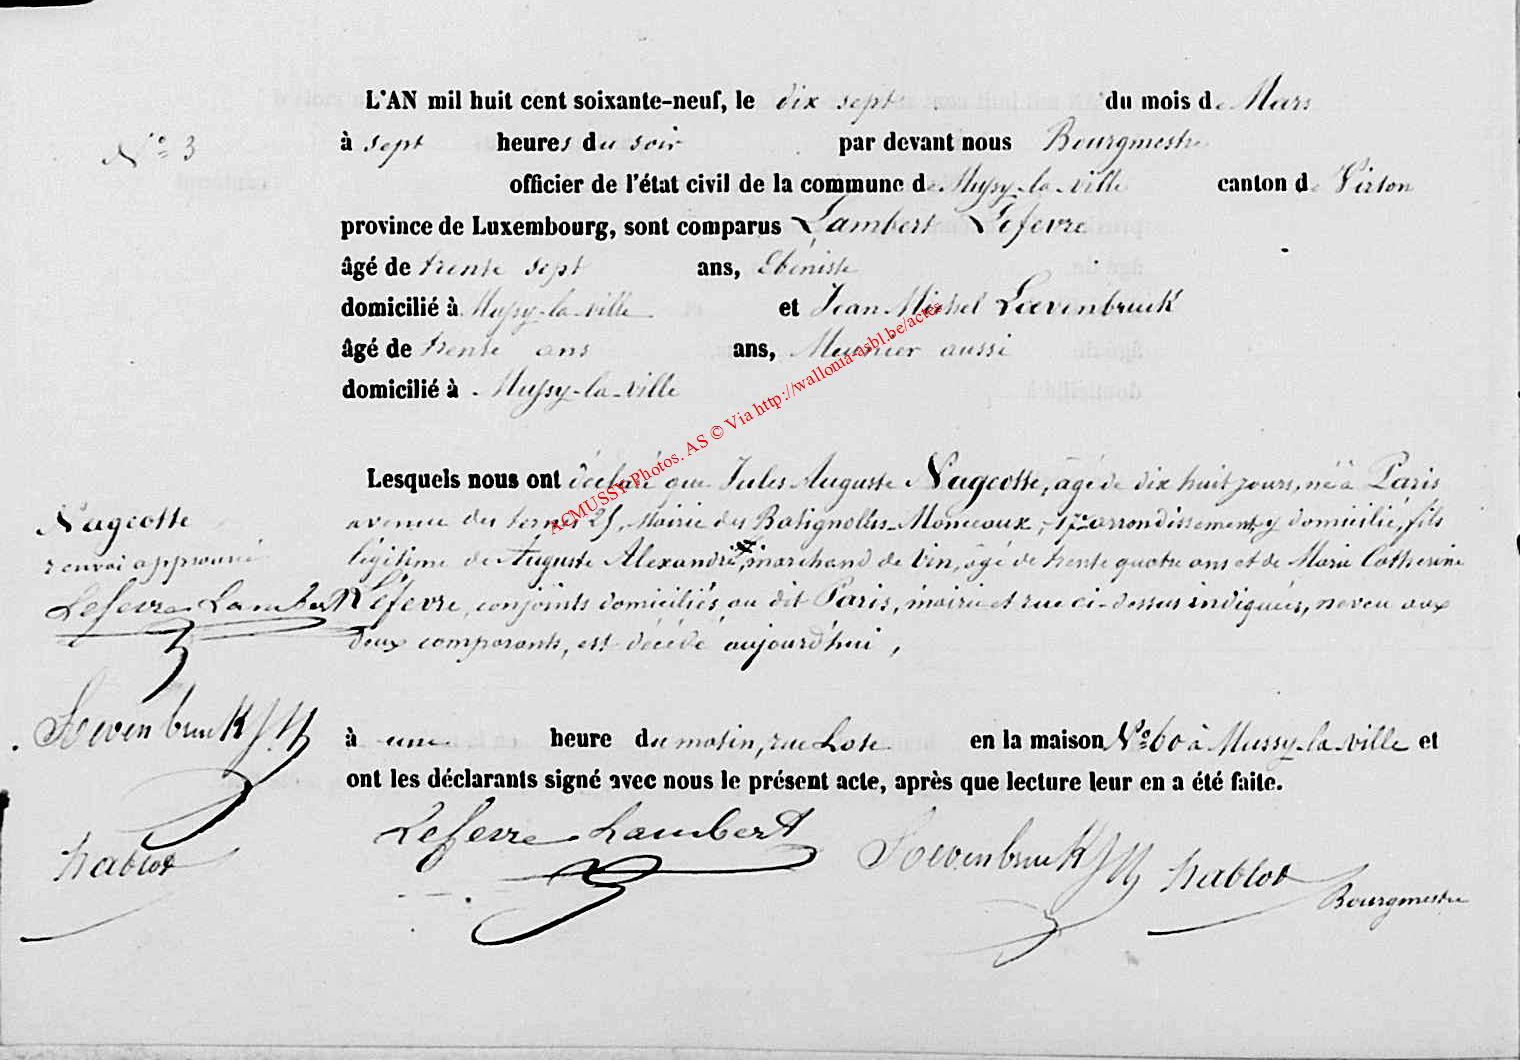 L'AN mil huit cent soixante-neuf, le dix sept du mois de Mars
N° 3
à sept heures du soir par devant nous Bourgmestre
officier de l'état civil de la commune de Mussy-la-ville canton de Virton
province de Luxembourg, sont comparus Lambert Lefevre
âgé de trente sept ans, Ebéniste
domicilié à Mussy-la-ville et Jean Michel Loevenbruck
âgé de trente ans ans, Meunier aussi
domicilié à Mussy-la-ville
ACMUSSY-Photos. AS © Via http://wallonia-asbl.be/actes
Lesquels nous ont déclaré que Jules Auguste Nageotte, âgé de dix huit jours, né à Paris
avenue des ternes 25, Mairie des Batignolles-Monceaux, 17e arrondissement, y domicilié, fils
légitime de Auguste Alexandre, marchand de Vin, âgé de trente quatre ans et de Marie Catherine
Lefevre, conjoints domiciliés au dit Paris, mairie et rue ci-dessus indiquées, neveu aux
deux comparants, est décédé aujourd'hui,
Nageotte
renvoi approuvé
Lefevre Lambert
Loevenbruck J M
hablot
à une heure du matin, rue Lose en la maison N° 60 à Mussy-la-ville et
ont les déclarants signé avec nous le présent acte, après que lecture leur en a été faite.
Lefevre Lambert Loevenbruck J M hablot
Bourgmestre